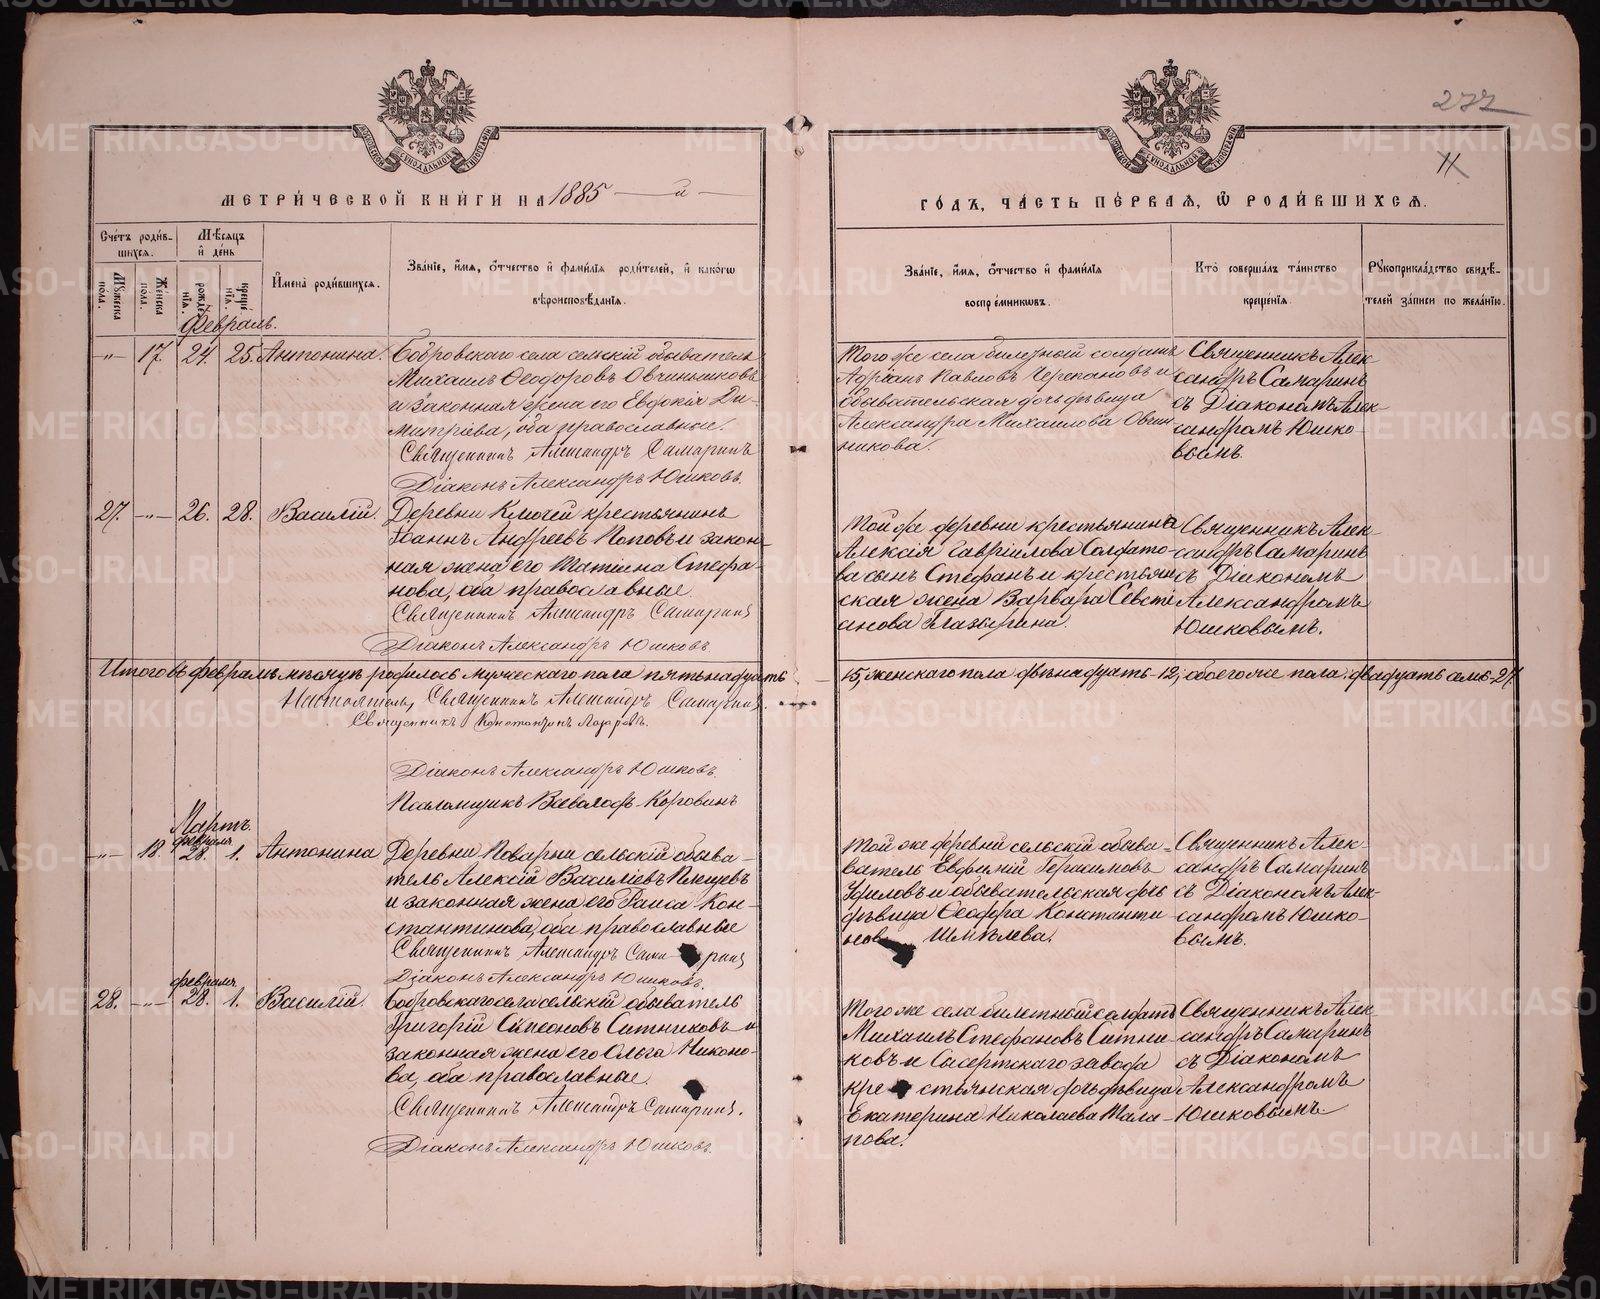 277
11
МЕТРИ́ЧЕСКОЙ КНИ́ГИ НА 1885 й
ГО́ДЪ, ЧА́СТЬ ПЕ́РВАЯ, Ѡ҆ РОДИ́ВШИХСЯ.
Сче́тъ роди́вшихся.
Мꙋжеска по́ла.
Же́нска по́ла.
Мѣ́сяцъ и҆ де́нь
рожде́нїя.
креще́нїя.
И҆мена̀ роди́вшихся.
Зва́нїе, и҆́мя, ѻ҆́тчество и҆ фами́лїя роди́телей, и҆ како́гѡ
вѣроисповѣ́данїя.
Зва́нїе, и҆́мя, ѻ҆́тчество и҆ фами́лїя
воспрїе́мникѡвъ.
Кто̀ соверша́лъ та́инство
креще́нїя.
Рꙋкоприкла́дство свидѣ́телей за́писи по жела́нїю.
Февраль.
-"- 17. 24. 25. Антонина.
Бобровскаго села сельскій обыватель
Михаилъ Ѳеодоровъ Овчинниковъ
и законная жена его Евдокія Ди-
митріева, оба православные.
Священникъ Александръ Самаринъ
Діаконъ Александръ Юшковъ.
Того же села билетный солдатъ
Адріанъ Павловъ Черепановъ и
обывательская дочь дѣвица
Александра Михаилова Овчин
никова.
Священникъ Алек-
сандръ Самаринъ
съ Діакономъ Алек-
сандромъ Юшко-
вымъ.
27. -"- 26. 28. Василій.
Деревни Ключей крестьянинъ
Іоаннъ Андреевъ Поповъ и закон-
ная жена его Татіана Стефа-
нова, оба православные.
Священникъ Александръ Самаринъ
Діаконъ Александръ Юшковъ
Той же деревни крестьянина
Алексія Гавріилова Солдато-
ва сынъ Стефанъ и крестьян
ская жена Варвара Севсті
анова Глазырина.
Священникъ Алек-
сандръ Самаринъ
съ Діакономъ
Александромъ
Юшковымъ.
Итого въ февралѣ мѣсяцѣ родилось мужескаго пола пятьнадцать
15, женскаго пола двѣнадцать - 12, обоего же пола двадцать семь - 27
Настоятель, Священникъ Александръ Самаринъ.
Священникъ Константинъ Лазаревъ.
Діаконъ Александръ Юшковъ.
Псаломщикъ Всеволодъ Коровинъ
Мартъ.
февраля
-"- 18. 28. 1. Антонина
Деревни Поварни сельскій обыва-
тель Алексій Василіевъ Плещевъ
и законная жена его Раиса Кон-
стантинова, оба православные
Священникъ Александръ Сама-ринъ
Діаконъ Александръ Юшковъ.
Той же деревни сельскій обыва-
ватель Евфимій Герасимовъ
и обывательская дочь
дѣвица Ѳеодора Константи
нова Шмѣлева.
Священникъ Алек-
сандръ Самаринъ
съ Діакономъ Алек-
сандромъ Юшко-
вымъ.
февраля
28. -"- 28. 1. Василій
Бобровскаго села сельскій обыватель
Григорій Симеоновъ Ситниковъ и
законная жена его Ольга Никоно-
ва, оба православные.
Священникъ Александръ Самаринъ.
Діаконъ Александръ Юшковъ.
Того же села билетный солдатъ
Михаилъ Стефановъ Ситни-
ковъ и Сысертскаго завода
крестьянская дочь дѣвица
Екатерина Николаева Тала-
пова.
Священникъ Алек-
сандръ Самаринъ
съ Діакономъ
Александромъ
Юшковымъ.
METRIKI.GASO-URAL.RU